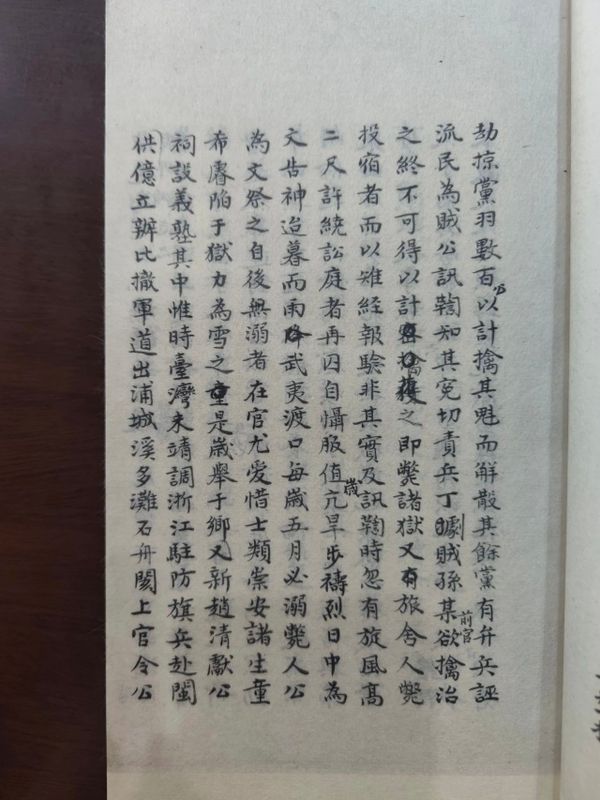 劫掠黨羽數百公以計擒其魁而解散其餘黨有弁兵誣
流民為賊公訊鞫知其冤切責兵丁劇賊孫某前官欲擒治
之終不可得以計擒獲之即斃諸獄又有旅舍人斃
投宿者而以雉經報驗非其實及訊鞫時忽有旋風高
二尺許繞訟庭者再囚自懾服值歲亢旱步禱烈日中為
文告神迨暮而雨降武夷渡口每歲五月必溺斃人公
為文祭之自後無溺者在官尤愛惜士類崇安諸生童
希廖陷于獄力為雪之童是歲舉于鄉又新趙清獻公
祠設義塾其中惟時臺灣未靖調浙江駐防旗兵赴閩
供億立辦比撤軍道出浦城溪多灘石舟閣上官令公